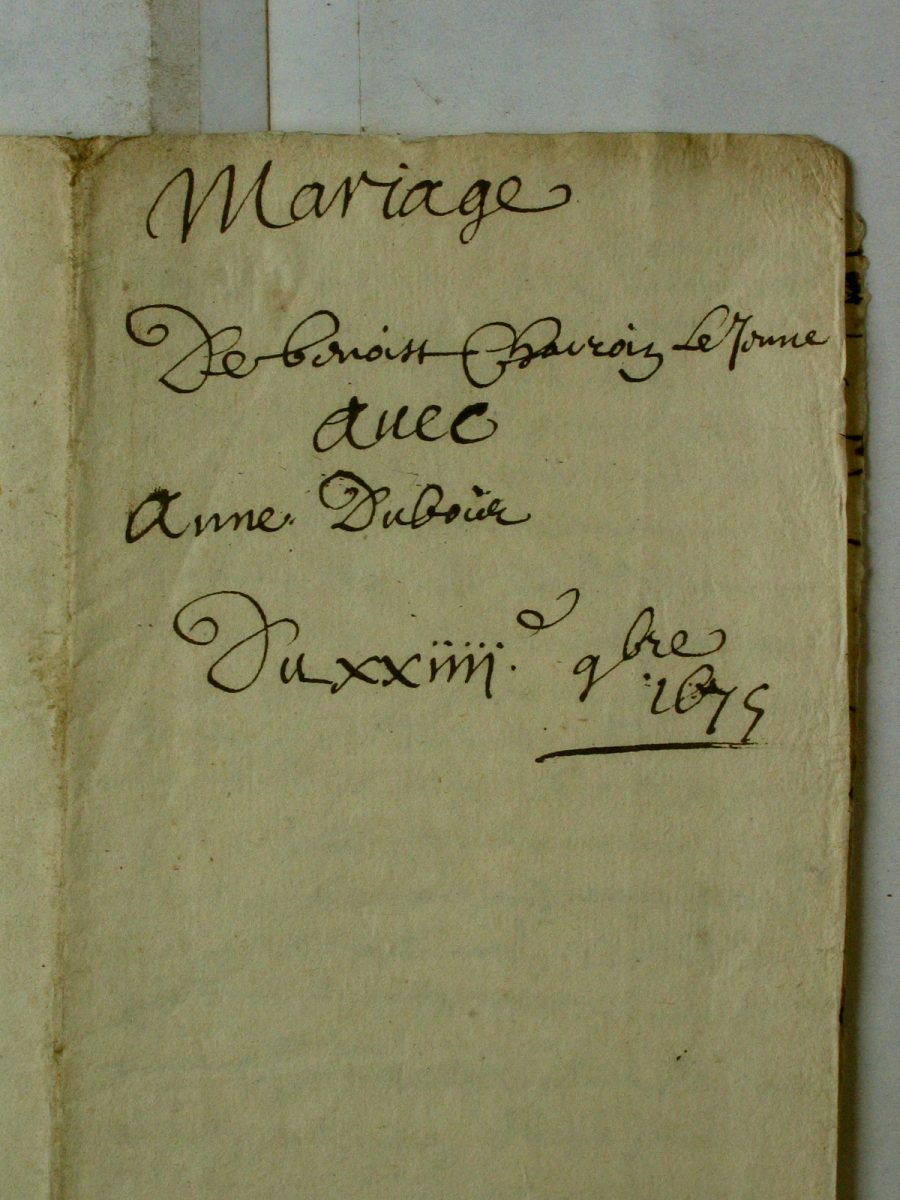 Mariage
De benoist Chavroin Le Jeune
auec
Anne Duboüis
Du xxiiiii.e 9bre
1675